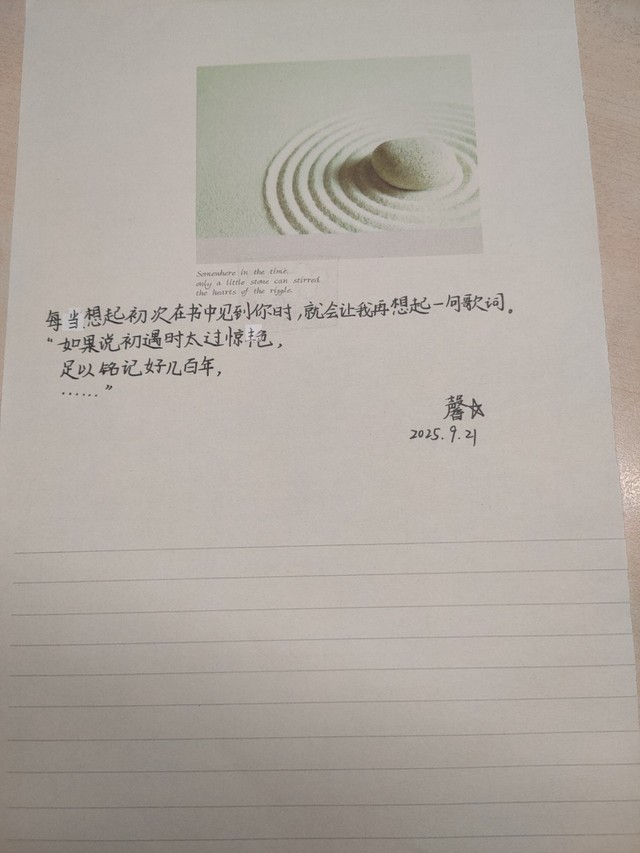 Somewhere in the time,
only a little stone can stirred
the hearts of the riggle.
每当想起初次在书中见到你时,就会让我再想起一句歌词。
“如果说初遇时太过惊艳,
足以铭记好几百年,
……”
馨☆
2025.9.21